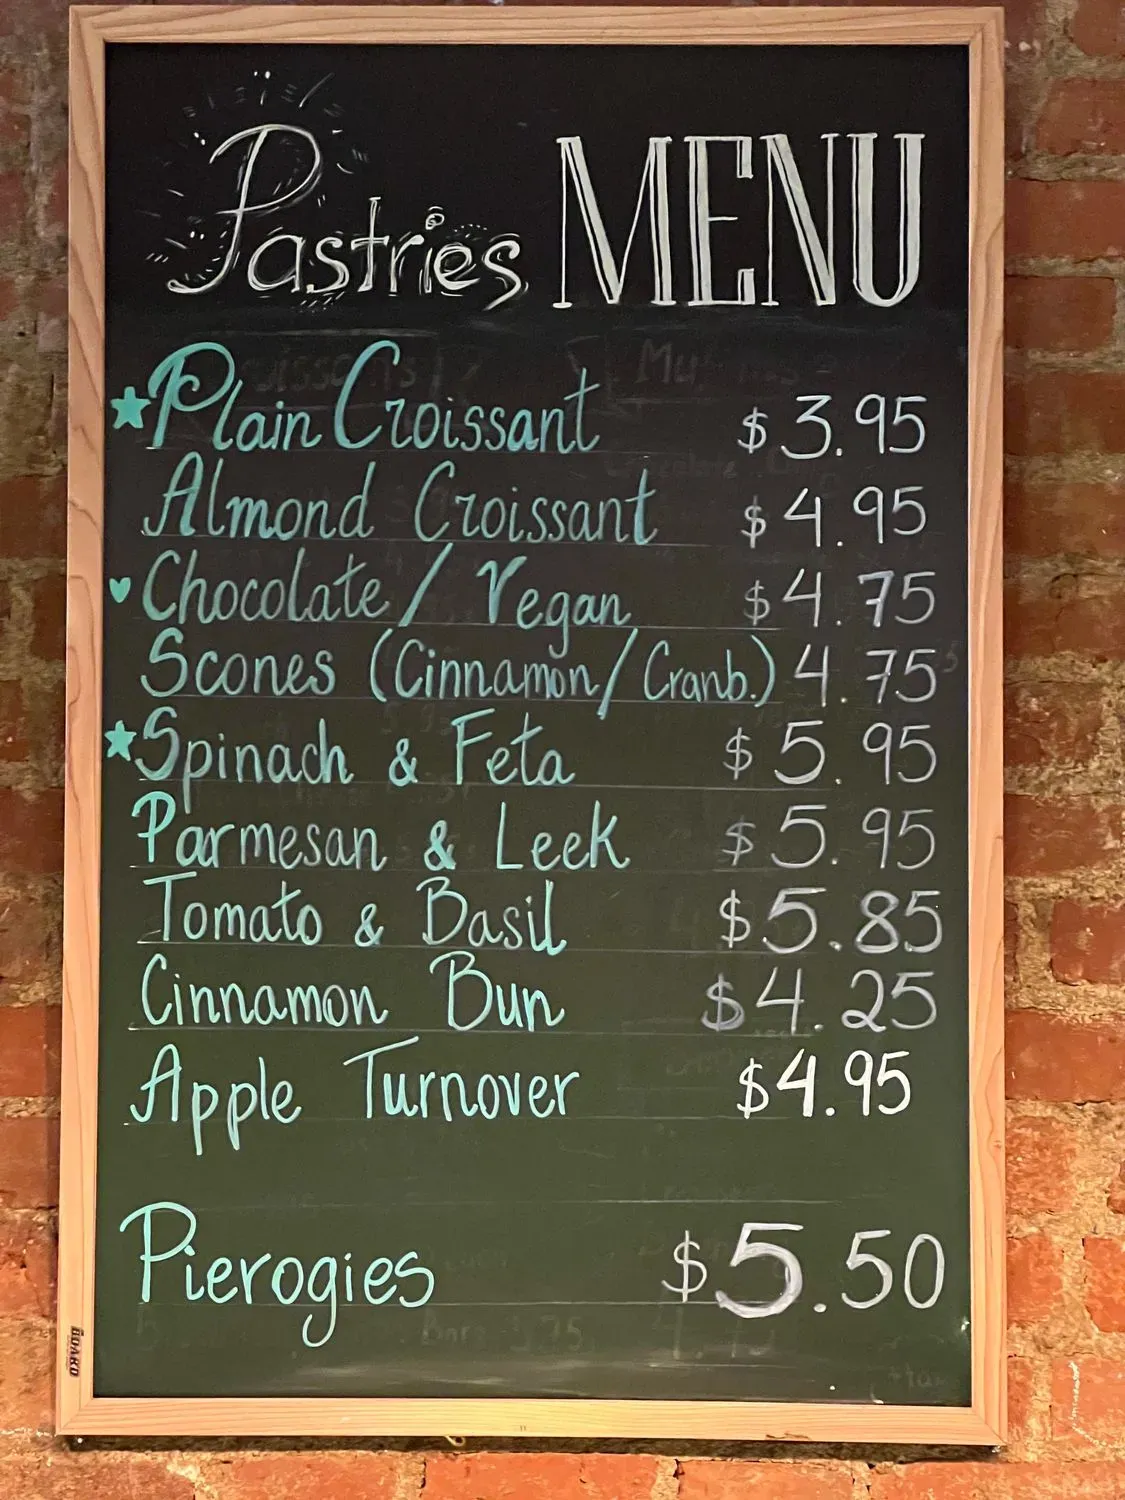 Pastries MENU
Plain Croissant $3.95
Almond Croissant $4.95
Chocolate / Vegan $4.75
Scones (Cinnamon/Cranb.) 4.75
Spinach & Feta $5.95
Parmesan & Leek $5.95
Tomato & Basil $5.85
Cinnamon Bun $4.25
Apple Turnover $4.95
Pierogies $5.50
BOARD